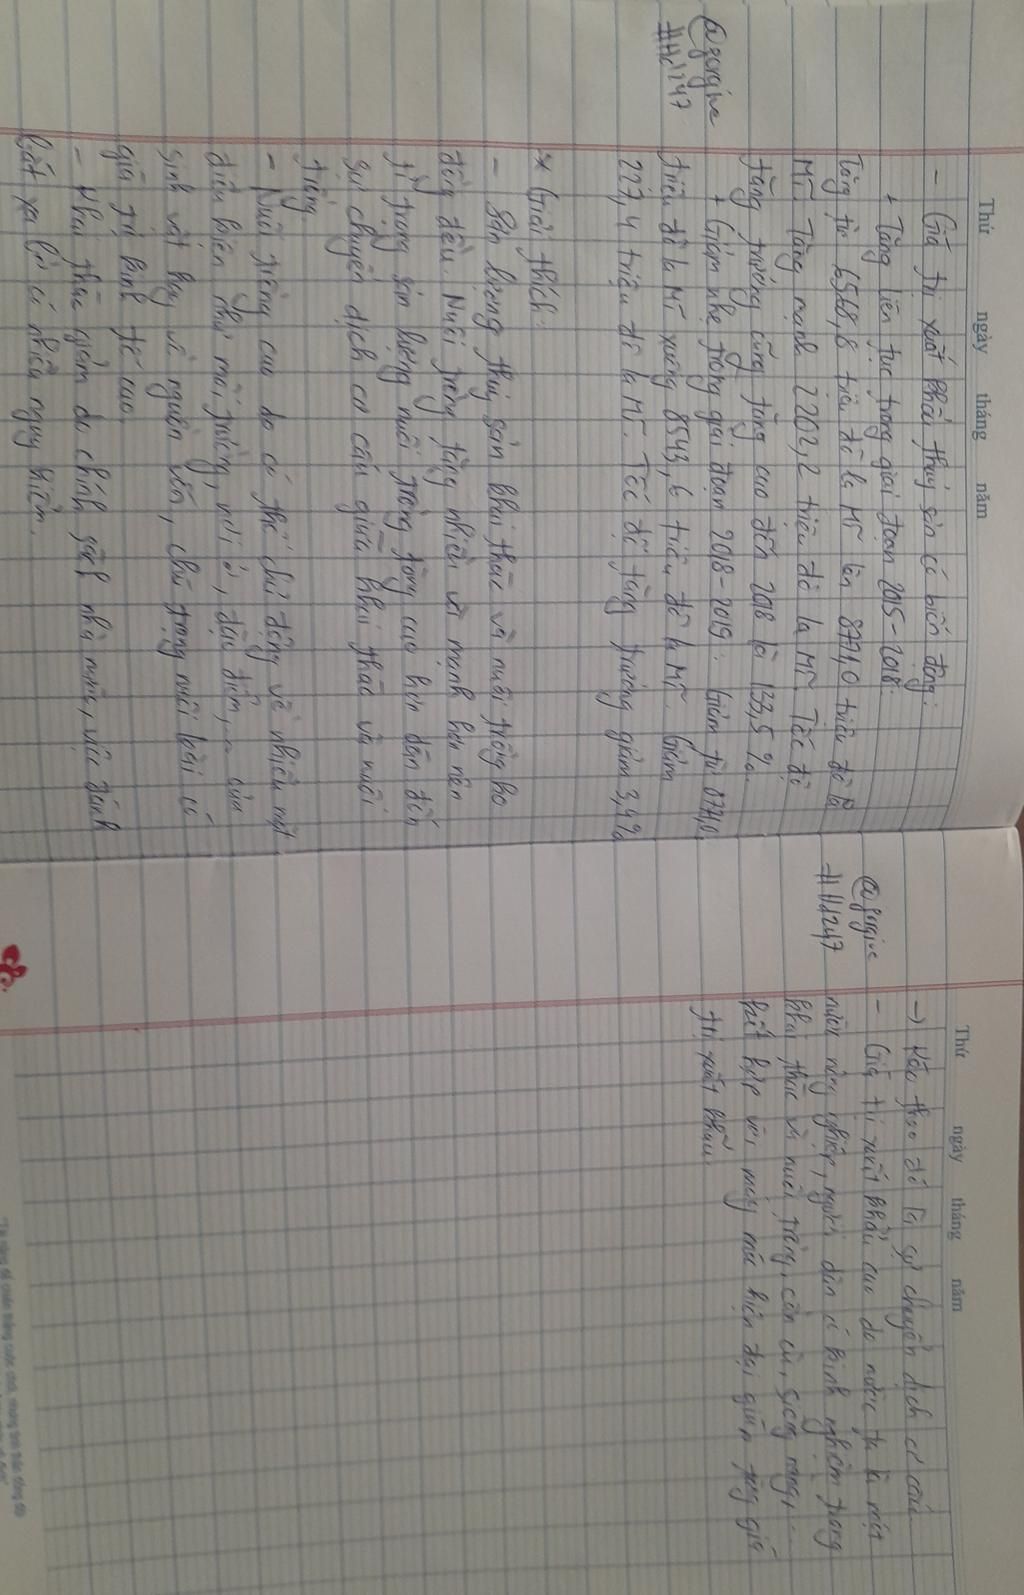 Thứ ngày tháng năm
- Giá trị xuất khẩu thuỷ sản có biến động:
+ Tăng liên tục trong giai đoạn 2015-2018:
Tăng từ 6568,8 triệu đô la Mĩ lên 8771,0 triệu đô la
Mĩ. Tăng mạnh 2202,2 triệu đô la Mĩ. Tốc độ
tăng trưởng cũng tăng cao đến 2018 là 133,5%.
+ Giảm nhẹ trong giai đoạn 2018-2019: Giảm từ 8771,0
triệu đô la Mĩ xuống 8543,6 triệu đô la Mĩ. Giảm
227,4 triệu đô la Mĩ. Tốc độ tăng trưởng giảm 3,4%
@gorgine
#Hd247
* Giải thích:
- Sản lượng thuỷ sản khai thác và nuôi trồng ko
đồng đều. Nuôi trồng tăng nhiều và mạnh hơn nên
tỉ trọng sản lượng nuôi trồng tăng cao hơn dẫn đến
sự chuyển dịch cơ cấu giữa khai thác và nuôi
trồng.
- Nuôi trồng cao do có thể chủ động về nhiều mặt
điều kiện như môi trường, nơi ở, đặc điểm,... của
sinh vật hay về nguồn vốn, chú trọng nuôi loài có
giá trị kinh tế cao.
- Khai thác giảm do chính sách nhà nước, việc đánh
bắt xa bờ có nhiều nguy hiểm.
Thứ ngày tháng năm
→ Kéo theo đó là sự chuyển dịch cơ cấu
- Giá trị xuất khẩu cao do nước ta là một
nước nông nghiệp, người dân có kinh nghiệm trong
khai thác và nuôi trồng, cần cù, siêng năng,...
kết hợp với máy móc hiện đại giúp tăng giá
trị xuất khẩu.
@gorgine
#Hd247